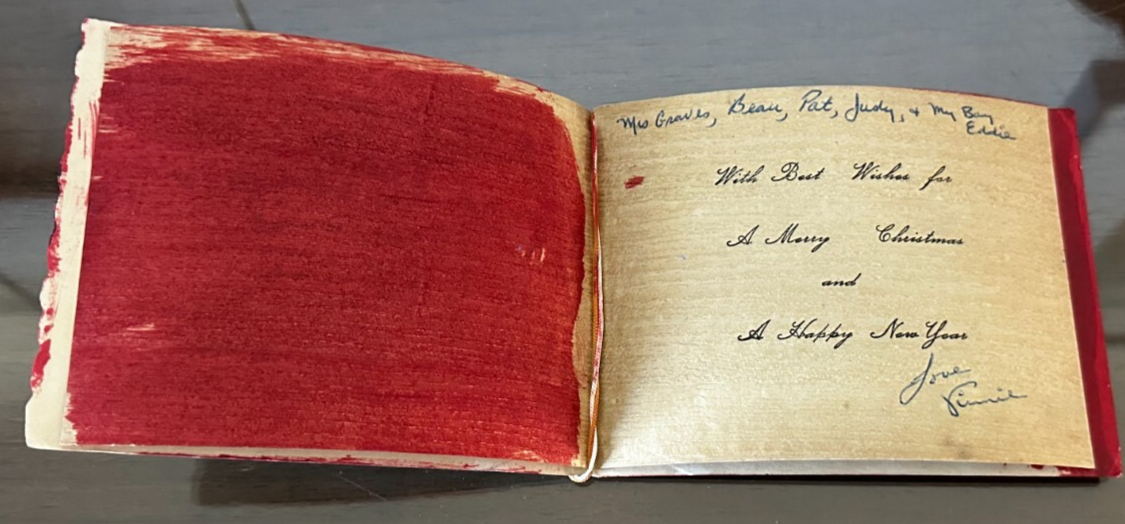 Mrs Graves, Beau, Pat, Judy, + My Boy
Eddie
With Best Wishes for
A Merry Christmas
and
A Happy New Year
Love
Vinnie